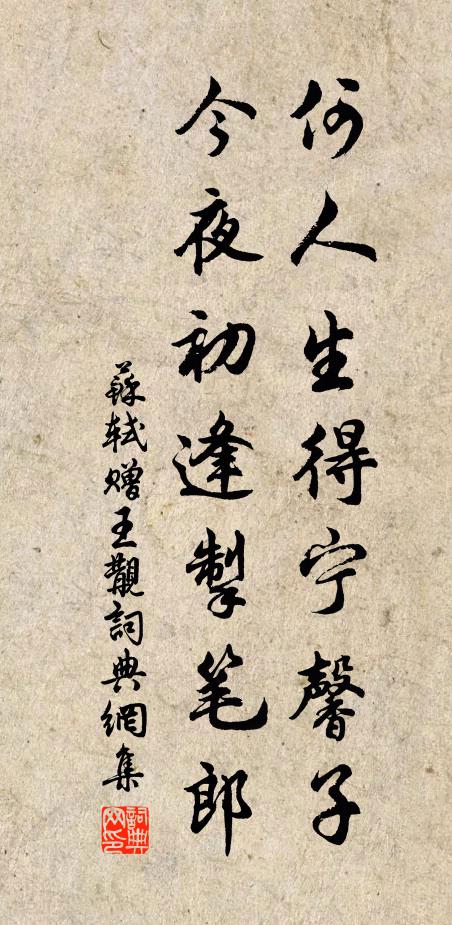 何人生得宁馨子
今夜初逢掣笔郎
蘇轼赠王觀詞典網集
詞典网印